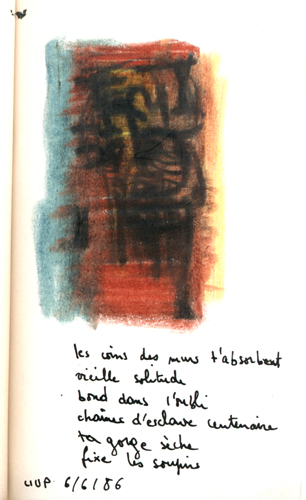 les coins des murs t'absorbent
vieille solitude
bond dans l'oubli
chaînes d'esclave centenaire
ta gorge sèche
fixe les soupirs
6/6/86